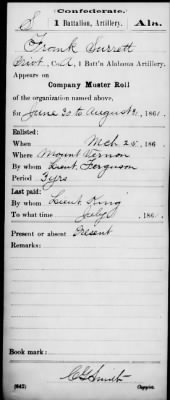 Confederate.
S 1 Battalion, Artillery. Ala.
Frank Surrett
Privt, Co. A, 1 Batt'n Alabama Artillery.
Appears on
Company Muster Roll
of the organization named above,
for June 30 to August 31, 186 .
Enlisted:
When Mch 25, 186
Where Mount Vernon
By whom Lieut. Ferguson
Period 3 yrs
Last paid:
By whom Lieut King
To what time July 186 .
Present or absent Present
Remarks:
Book mark:
C G Smith
(642) Copyist.